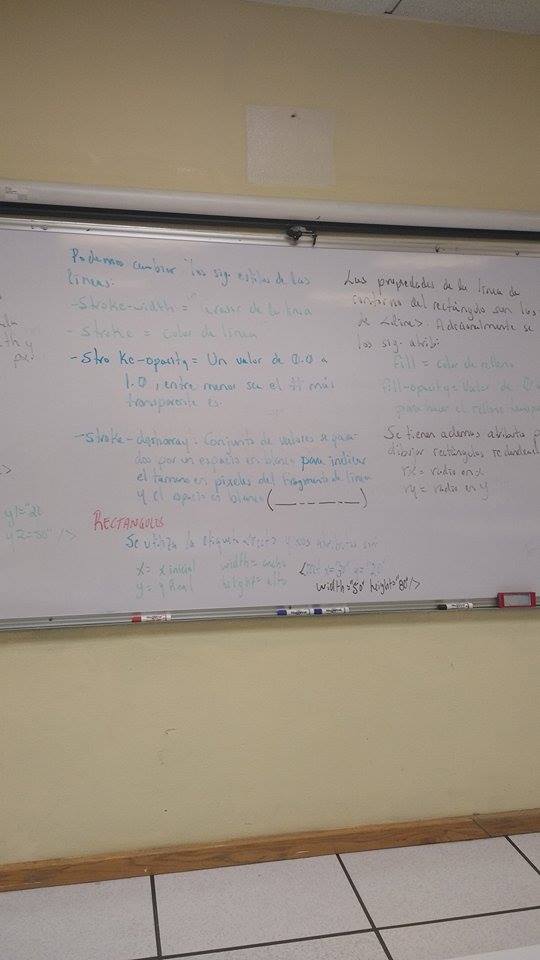 Podemos cambiar los sig. estilos de las
líneas:
-Stroke-width = Grosor de la línea
-Stroke = color de línea
-Stroke-opacity = Un valor de 0.0 a
1.0, entre menor sea el # más
transparente es.
-stroke-dasharray: Conjunto de valores separa
dos por un espacio en blanco para indicar
el tamano en pixeles del fragmento de línea
y el espacio en blanco (__ __ __ __)
RECTANGULOS
Se utiliza la etiqueta <rect> y sus atributos son
x= x inicial width= ancho
y= y final height= alto
<rect x="3" y="20"
width="50" height="80"/>
Las propiedades de la línea de
contorno del rectángulo son las
de <line>. Adicionalmente se
los sig. atrib:
Fill = color de relleno
Fill-opacity= Valor de
para hacer el relleno
Se tienen ademas atributos p
dibujar rectángulos redondea
rx = radio en x
ry = radio en y
y1="20
y2="50" />